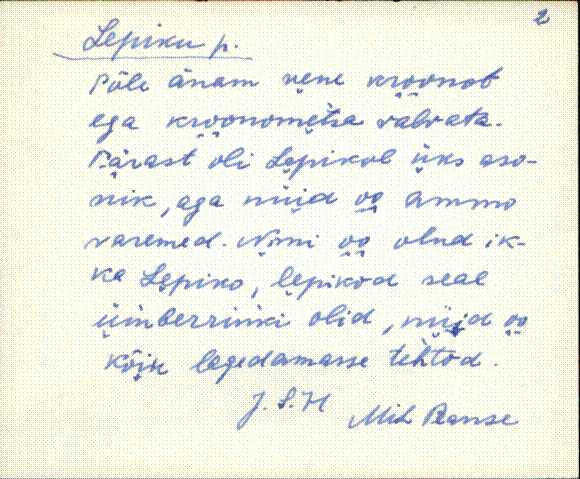 2
Lepiku p.
Põle änam vene kroonot
ega kroonometsa valvata.
Pärast oli Lepikol üks aso-
nik, aga nüid oo ammo
varemed. Nimi oo olnd ik-
ka Lepiko, lepikod seal
ümberrinki olid, nüid oo
kõik legedamasse tehtod.
J. S. H